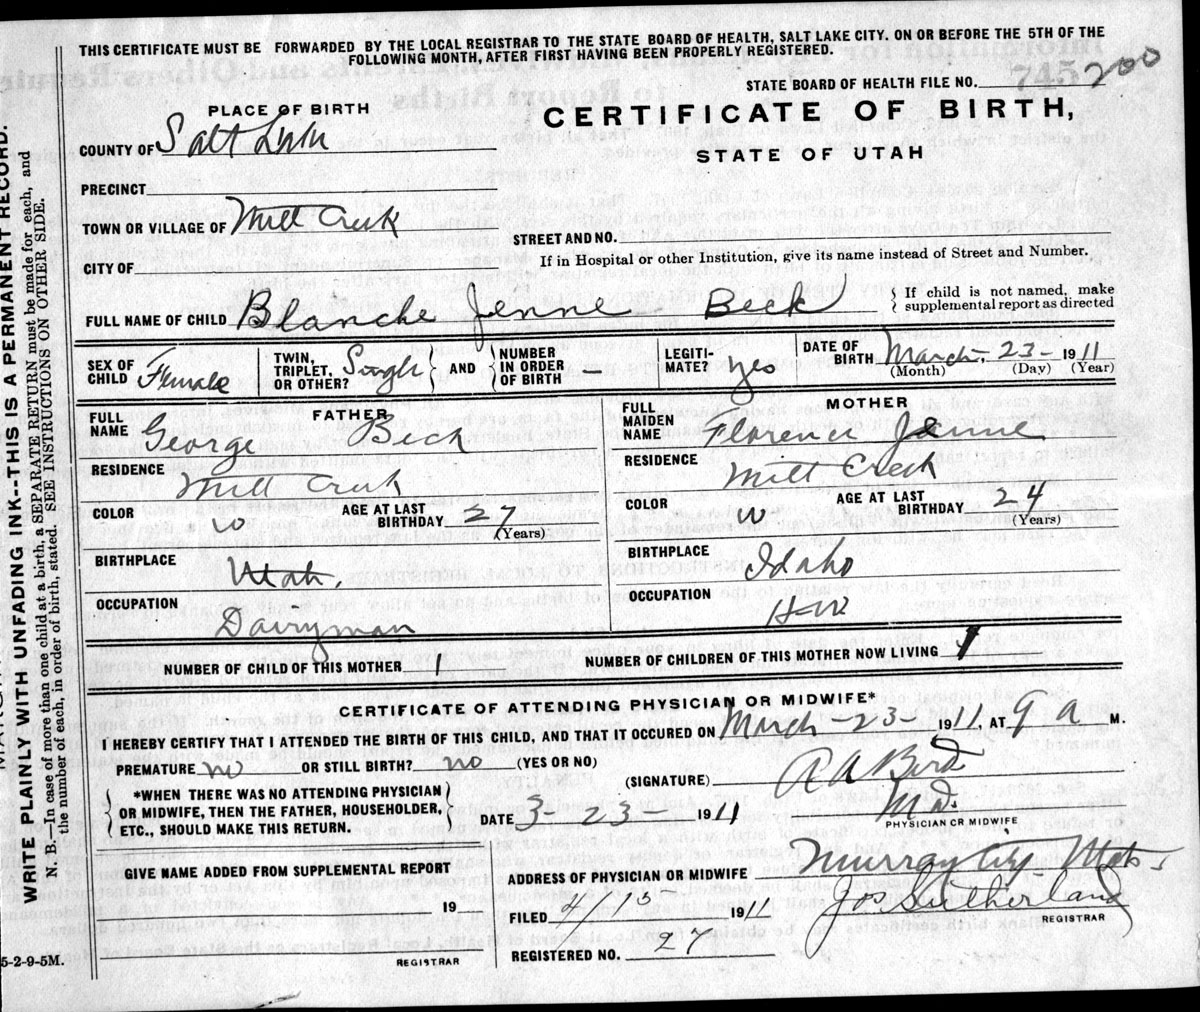 THIS CERTIFICATE MUST BE FORWARDED BY THE LOCAL REGISTRAR TO THE STATE BOARD OF HEALTH, SALT LAKE CITY. ON OR BEFORE THE 5TH OF THE
FOLLOWING MONTH, AFTER FIRST HAVING BEEN PROPERLY REGISTERED.
STATE BOARD OF HEALTH FILE NO. 200
745
PLACE OF BIRTH
CERTIFICATE OF BIRTH,
COUNTY OF Salt Lake
STATE OF UTAH
PRECINCT
TOWN OR VILLAGE OF Mill Creek
STREET AND NO.
CITY OF
If in Hospital or other Institution, give its name instead of Street and Number.
FULL NAME OF CHILD Blanche Jenne Beck
If child is not named, make
supplemental report as directed
SEX OF CHILD Female
TWIN, TRIPLET, OR OTHER? Single
AND
NUMBER IN ORDER OF BIRTH -
LEGITI-MATE? yes
DATE OF BIRTH March. 23- 1911
(Month) (Day) (Year)
FATHER
FULL NAME George Beck
MOTHER
FULL MAIDEN NAME Florence Jenne
RESIDENCE Mill Creek
RESIDENCE Mill Creek
COLOR W AGE AT LAST BIRTHDAY 27 (Years)
COLOR W AGE AT LAST BIRTHDAY 24 (Years)
BIRTHPLACE Utah.
BIRTHPLACE Idaho
OCCUPATION Dairyman
OCCUPATION H-W
NUMBER OF CHILD OF THIS MOTHER 1
NUMBER OF CHILDREN OF THIS MOTHER NOW LIVING 1
CERTIFICATE OF ATTENDING PHYSICIAN OR MIDWIFE*
I HEREBY CERTIFY THAT I ATTENDED THE BIRTH OF THIS CHILD, AND THAT IT OCCURED ON March-23- 1911. AT 9 a M.
PREMATURE no OR STILL BIRTH? no (YES OR NO)
(SIGNATURE) R A Bird
M.D.
PHYSICIAN OR MIDWIFE
*WHEN THERE WAS NO ATTENDING PHYSICIAN
OR MIDWIFE, THEN THE FATHER, HOUSEHOLDER,
ETC., SHOULD MAKE THIS RETURN.
DATE 3-23- 1911
GIVE NAME ADDED FROM SUPPLEMENTAL REPORT
19
REGISTRAR
ADDRESS OF PHYSICIAN OR MIDWIFE Murray City-Utah
FILED 4 15 1911
Jos Sutherland
REGISTRAR
REGISTERED NO. 27
5-2-9-5M.
WRITE PLAINLY WITH UNFADING INK--THIS IS A PERMANENT RECORD.
N. B.—In case of more than one child at a birth, a SEPARATE RETURN must be made for each, and
the number of each, in order of birth, stated. SEE INSTRUCTIONS ON OTHER SIDE.